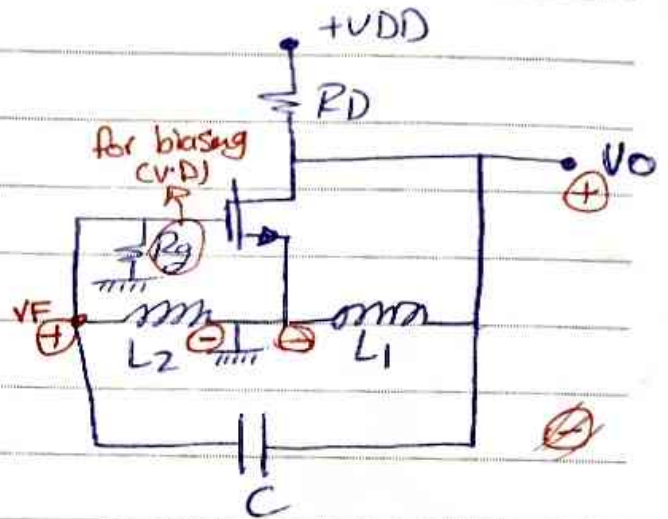 +VDD
RD
for biasing
(V.D)
Vo
+
Rg
VF
+
-
-
L2
L1
-
C